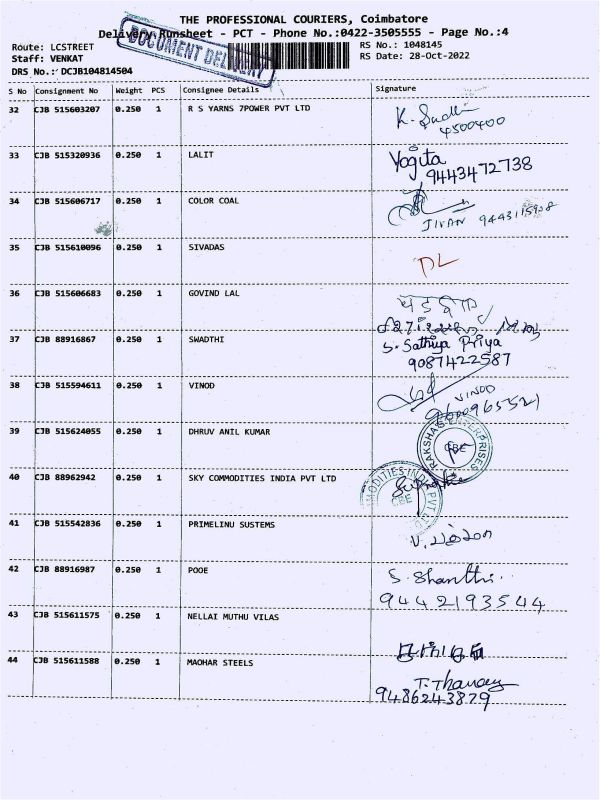 THE PROFESSIONAL COURIERS, Coimbatore
Delivery Runsheet - PCT - Phone No.:0422-3505555 - Page No.:4
DOCUMENT DELIVERY
Route: LCSTREET
RS No.: 1048145
Staff: VENKAT
RS Date: 28-Oct-2022
DRS No.: DCJB104814504
S No Consignment No Weight PCS Consignee Details Signature
32 CJB 515603207 0.250 1 R S YARNS 7POWER PVT LTD
4500400
33 CJB 515320936 0.250 1 LALIT Yogita
94434 72738
34 CJB 515606717 0.250 1 COLOR COAL
JIVAN
35 CJB 515610096 0.250 1 SIVADAS
36 CJB 515606683 0.250 1 GOVIND LAL
37 CJB 88916867 0.250 1 SWADTHI S. Sathiya Priya
9087422587
38 CJB 515594611 0.250 1 VINOD VINOD
39 CJB 515624055 0.250 1 DHRUV ANIL KUMAR
RAKSHA ENTERPRISES
CBE
40 CJB 88962942 0.250 1 SKY COMMODITIES INDIA PVT LTD
CBE
41 CJB 515542836 0.250 1 PRIMELINU SUSTEMS
42 CJB 88916987 0.250 1 POOE S. Shanthi.
9442193544
43 CJB 515611575 0.250 1 NELLAI MUTHU VILAS
44 CJB 515611588 0.250 1 MAOHAR STEELS
9486243879